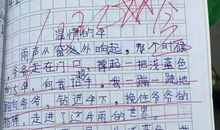 温情的伞
雨声从窗外响起，那个时候
爷爷走在门口，撑起一把淡蓝色
伞，向我招手，我一蹦一跳地
跑向爷爷，钻进伞下，挽住爷爷的
胳膊，走进了这片雨的世界。